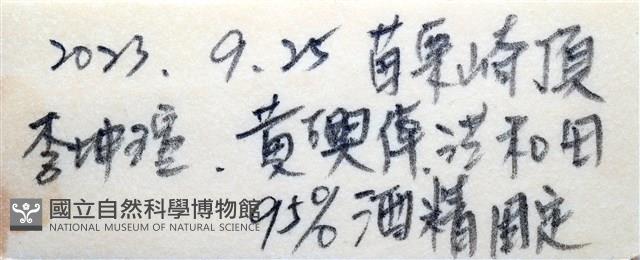 2023. 9. 25 苗栗崎頂
李坤瑄. 黃興倬. 洪和田
95% 酒精固定
國立自然科學博物館
NATIONAL MUSEUM OF NATURAL SCIENCE